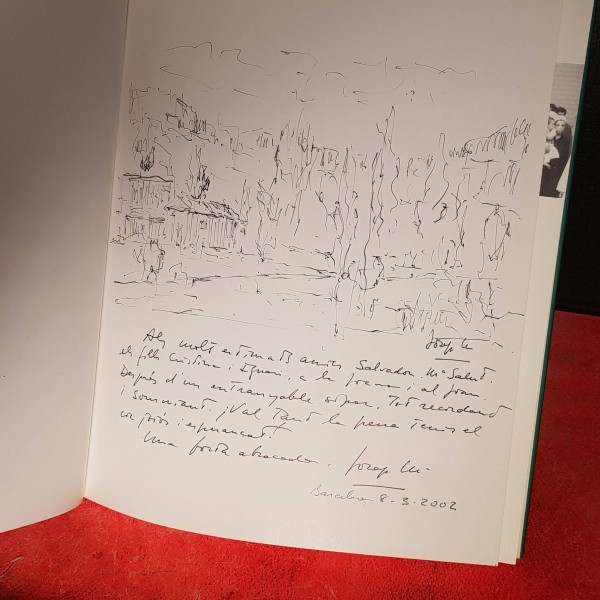 Josep Mª
Als molt estimats amics Salvador, Mª Salut.
els fills Cristina i Ignasi, a la i al Joan.
Després d'un entranyable sopar, tot recordant
i somniant. ¡Val tant la pena tenir el
cor joiós i esperançat!
Una forta abraçada. Josep Mª
Barcelona 8-3-2002